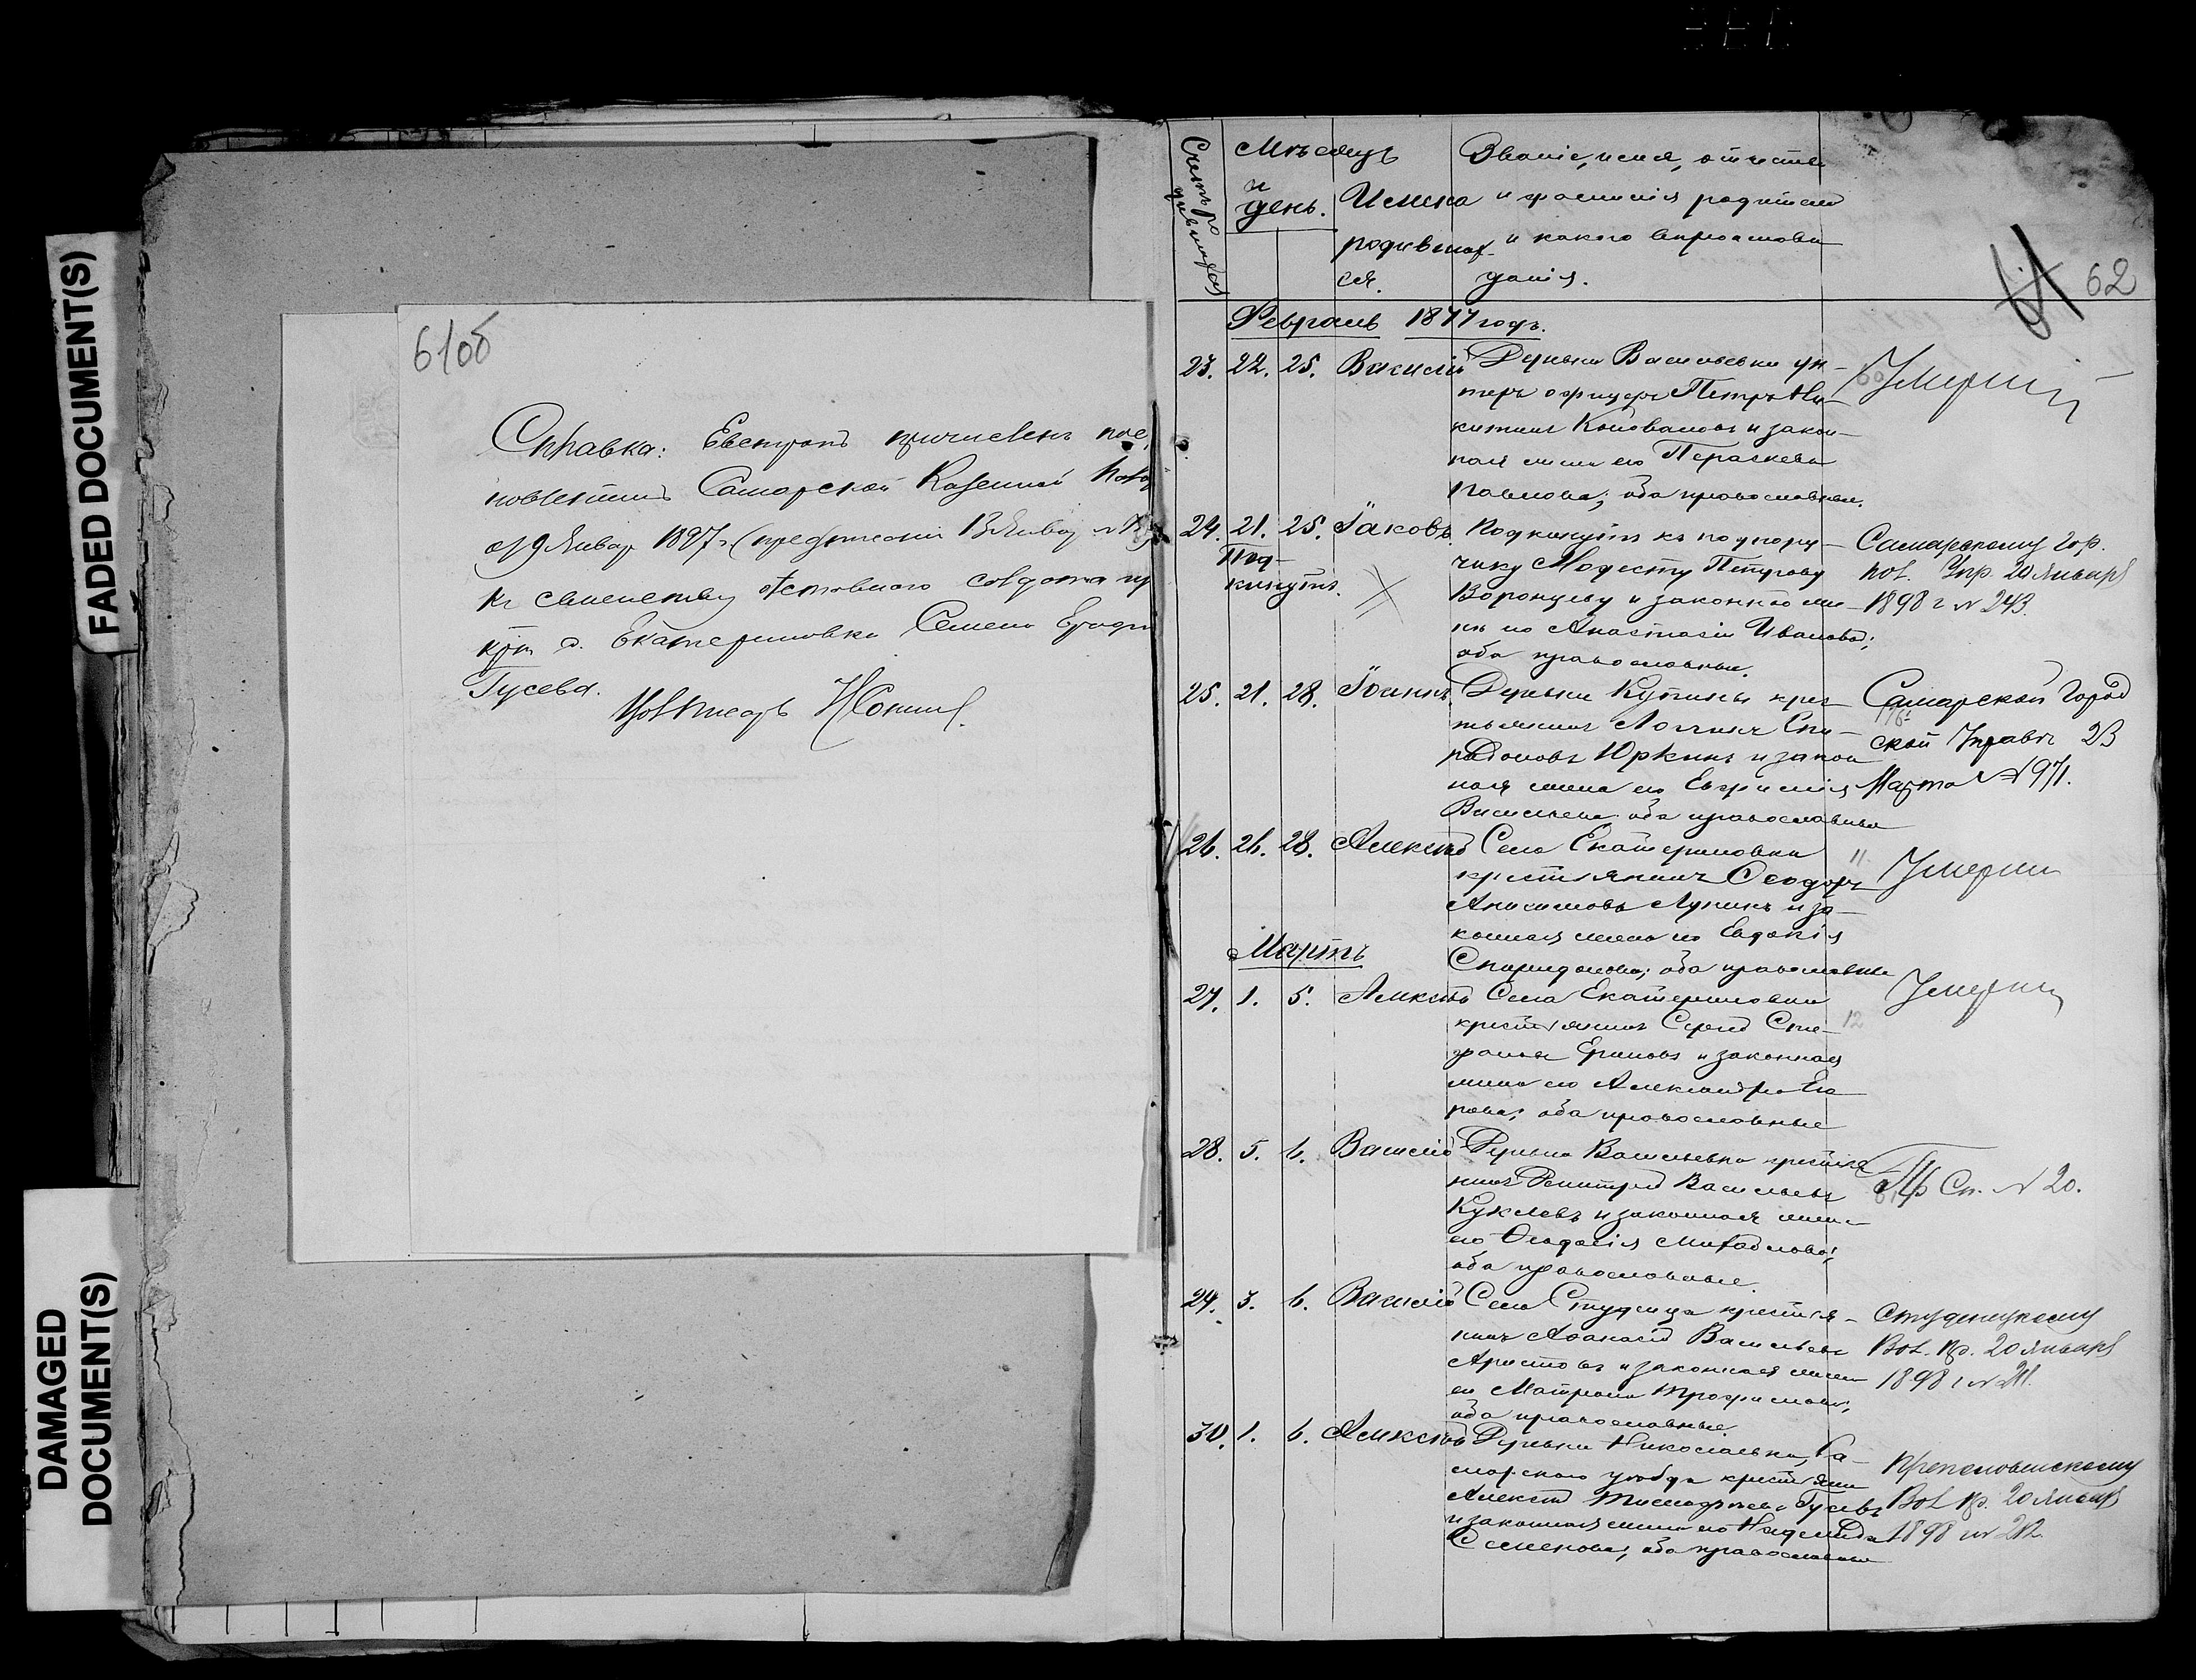 FADED DOCUMENT(S)
DAMAGED
DOCUMENT(S)
61об
Справка: Евстрат причислен
Самарской Казенной
от 9 Январ 1897 г (
къ семейству отставного солдата
с. Екатериновки Семена
Гусева.
Счетъ родившихся
Мѣсяцъ
и
день.
Имена
родившаго
ся.
Званіе, имя, отчество
и фамилія родителей
и какого вѣроисповѣ
данія.
62
Февраль 1877 годъ.
23. 22. 25. Василій Деревни Васильевки ун-
теръ офицеръ Петръ Ни-
китинъ Коноваловъ и закон-
ная жена его Параскева
Павлова; оба православные.
Умерший
24. 21. 25. Іаковъ. Подкинутъ къ подпору-
Под-
кинутъ.
чику Модесту Петрову
Воронцову и законной же-
нѣ его Анастасіи Ивановой;
оба православные.
Самарскому гор.
пол. Упр. 20 Января
1898 г № 243.
25. 21. 28. Іоаннъ. Деревни Купины крес-
тьянинъ Логгинъ Спи-
ридоновъ Юркинъ и закон
ная жена его Евфимія
Васильева оба православные
Самарской Город
ской Управѣ 23
Марта № 971.
26. 26. 28. Алексѣй Села Екатериновки
крестьянинъ Ѳеодоръ
Анисимовъ Лунинъ и за-
конная жена его Евдокія
Спиридонова; оба православные
11
Умерши
Мартъ
27. 1. 5. Алексѣй Села Екатериновки
крестьянинъ Сергѣй Сте-
фановъ Ериловъ и законная
жена его Александра Его
рова; оба православные
12
Умерши
28. 5. 6. Василій Деревни Васильевки крестья
нинъ Димитрій Васильевъ
Куклевъ и законная жена
его Ѳеодосія Михайлова;
оба православные.
Пр Сп. № 20.
29. 3. 6. Василій Села Студенца крестья-
нинъ Аѳанасій Васильевъ
Аристовъ и законная жена
его Матрона Трофимова;
оба православные.
Студенецкому
Вол. пр. 20 Января
1898 г № 241.
30. 1. 6. Алексѣй Деревни Николаевки, Са-
марскаго уѣзда крестьянин
Алексѣй Тимоѳеевъ Гусевъ
и законная жена его Надежда
Семенова; оба православные
Преполовенскому
Вол пр. 20 Января
1898 № 242.